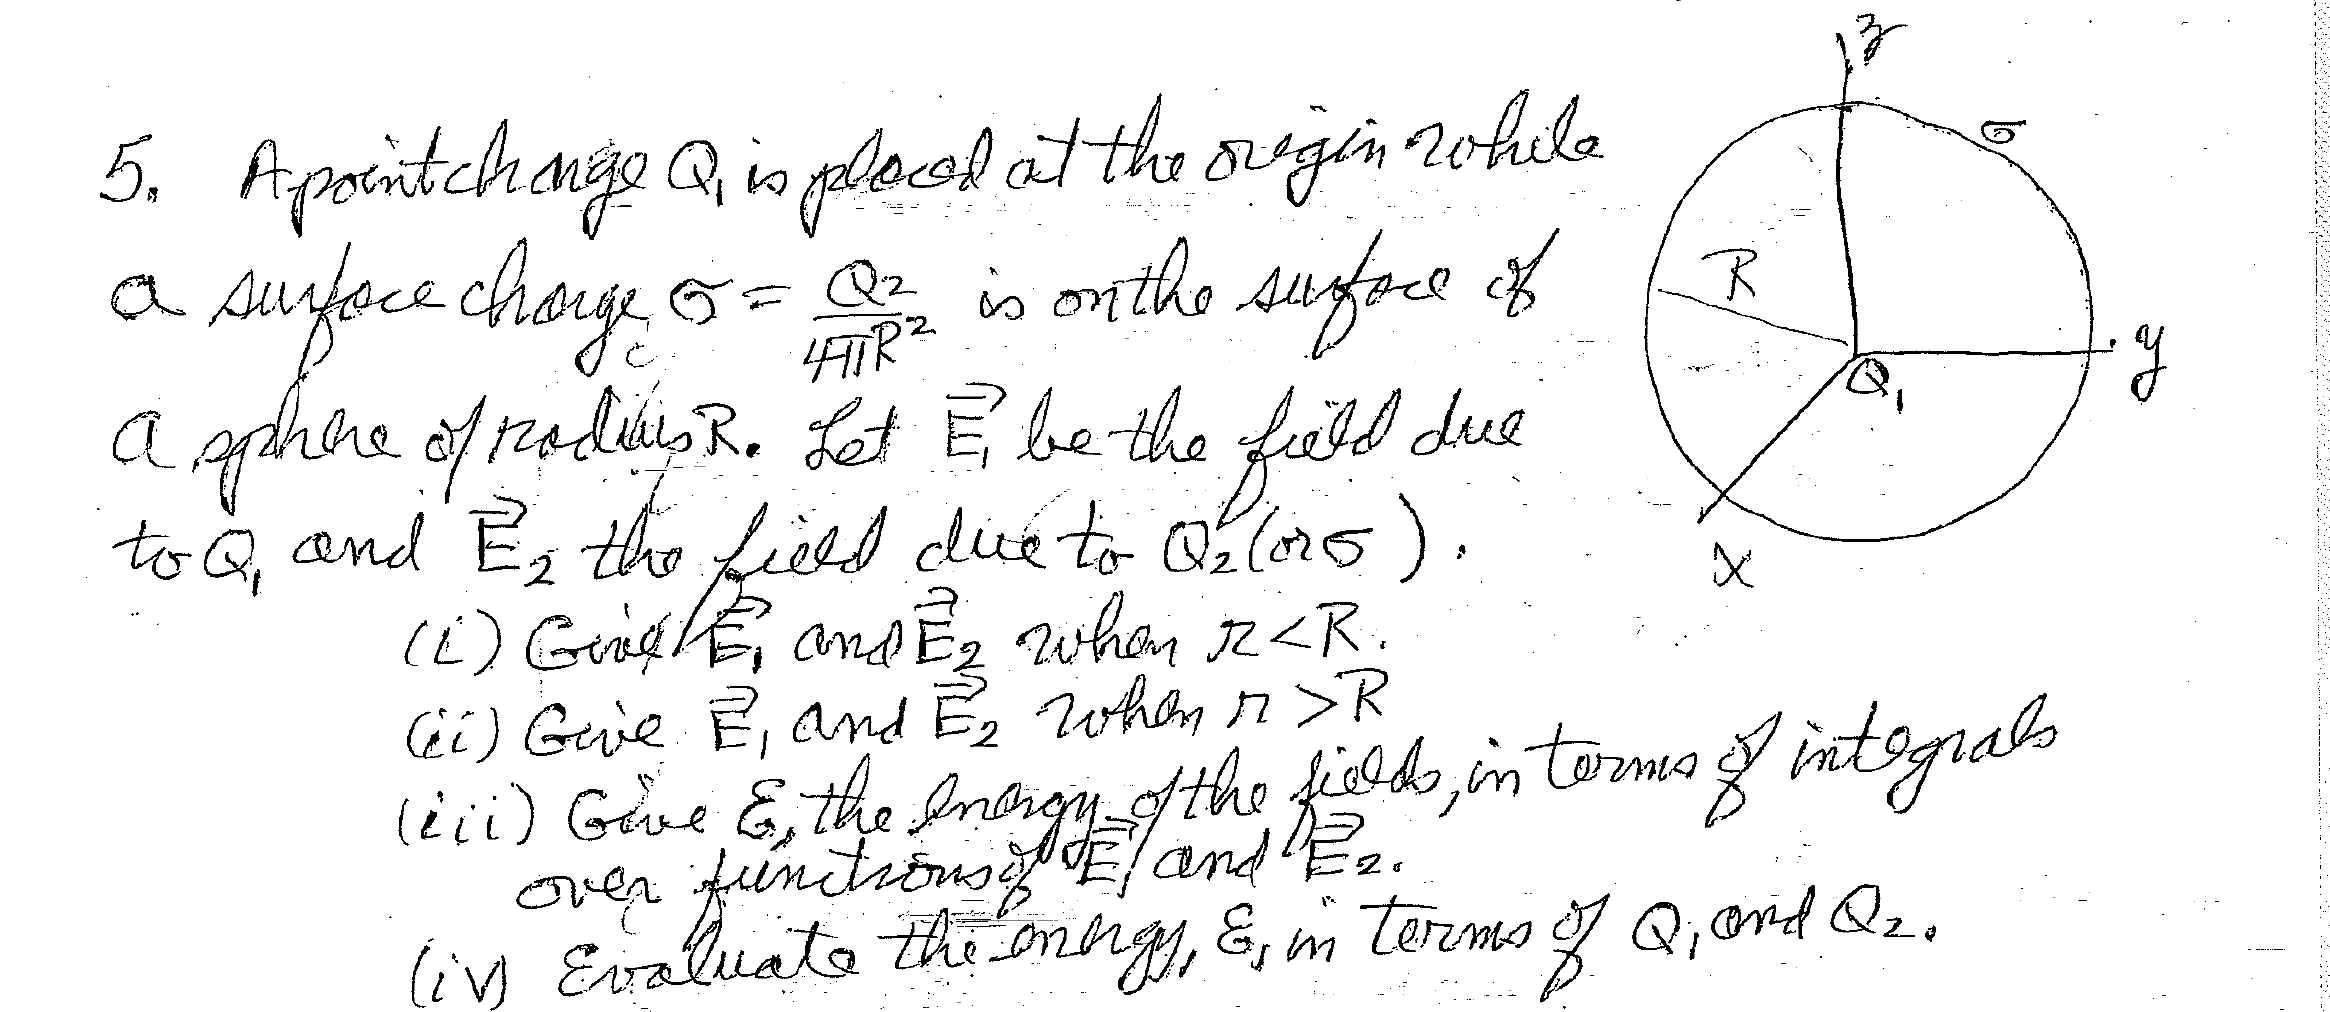 5. A point charge Q₁ is placed at the origin while
a surface charge σ = Q₂/4πR² is on the surface of
a sphere of radius R. Let E⃗₁ be the field due
to Q₁ and E⃗₂ the field due to Q₂ (or σ).
(i) Give E⃗₁ and E⃗₂ when r < R.
(ii) Give E⃗₁ and E⃗₂ when r > R
(iii) Give ℰ, the energy of the fields, in terms of integrals
over functions of E⃗₁ and E⃗₂.
(iv) Evaluate the energy, ℰ, in terms of Q₁ and Q₂.
z
σ
R
y
Q₁
x